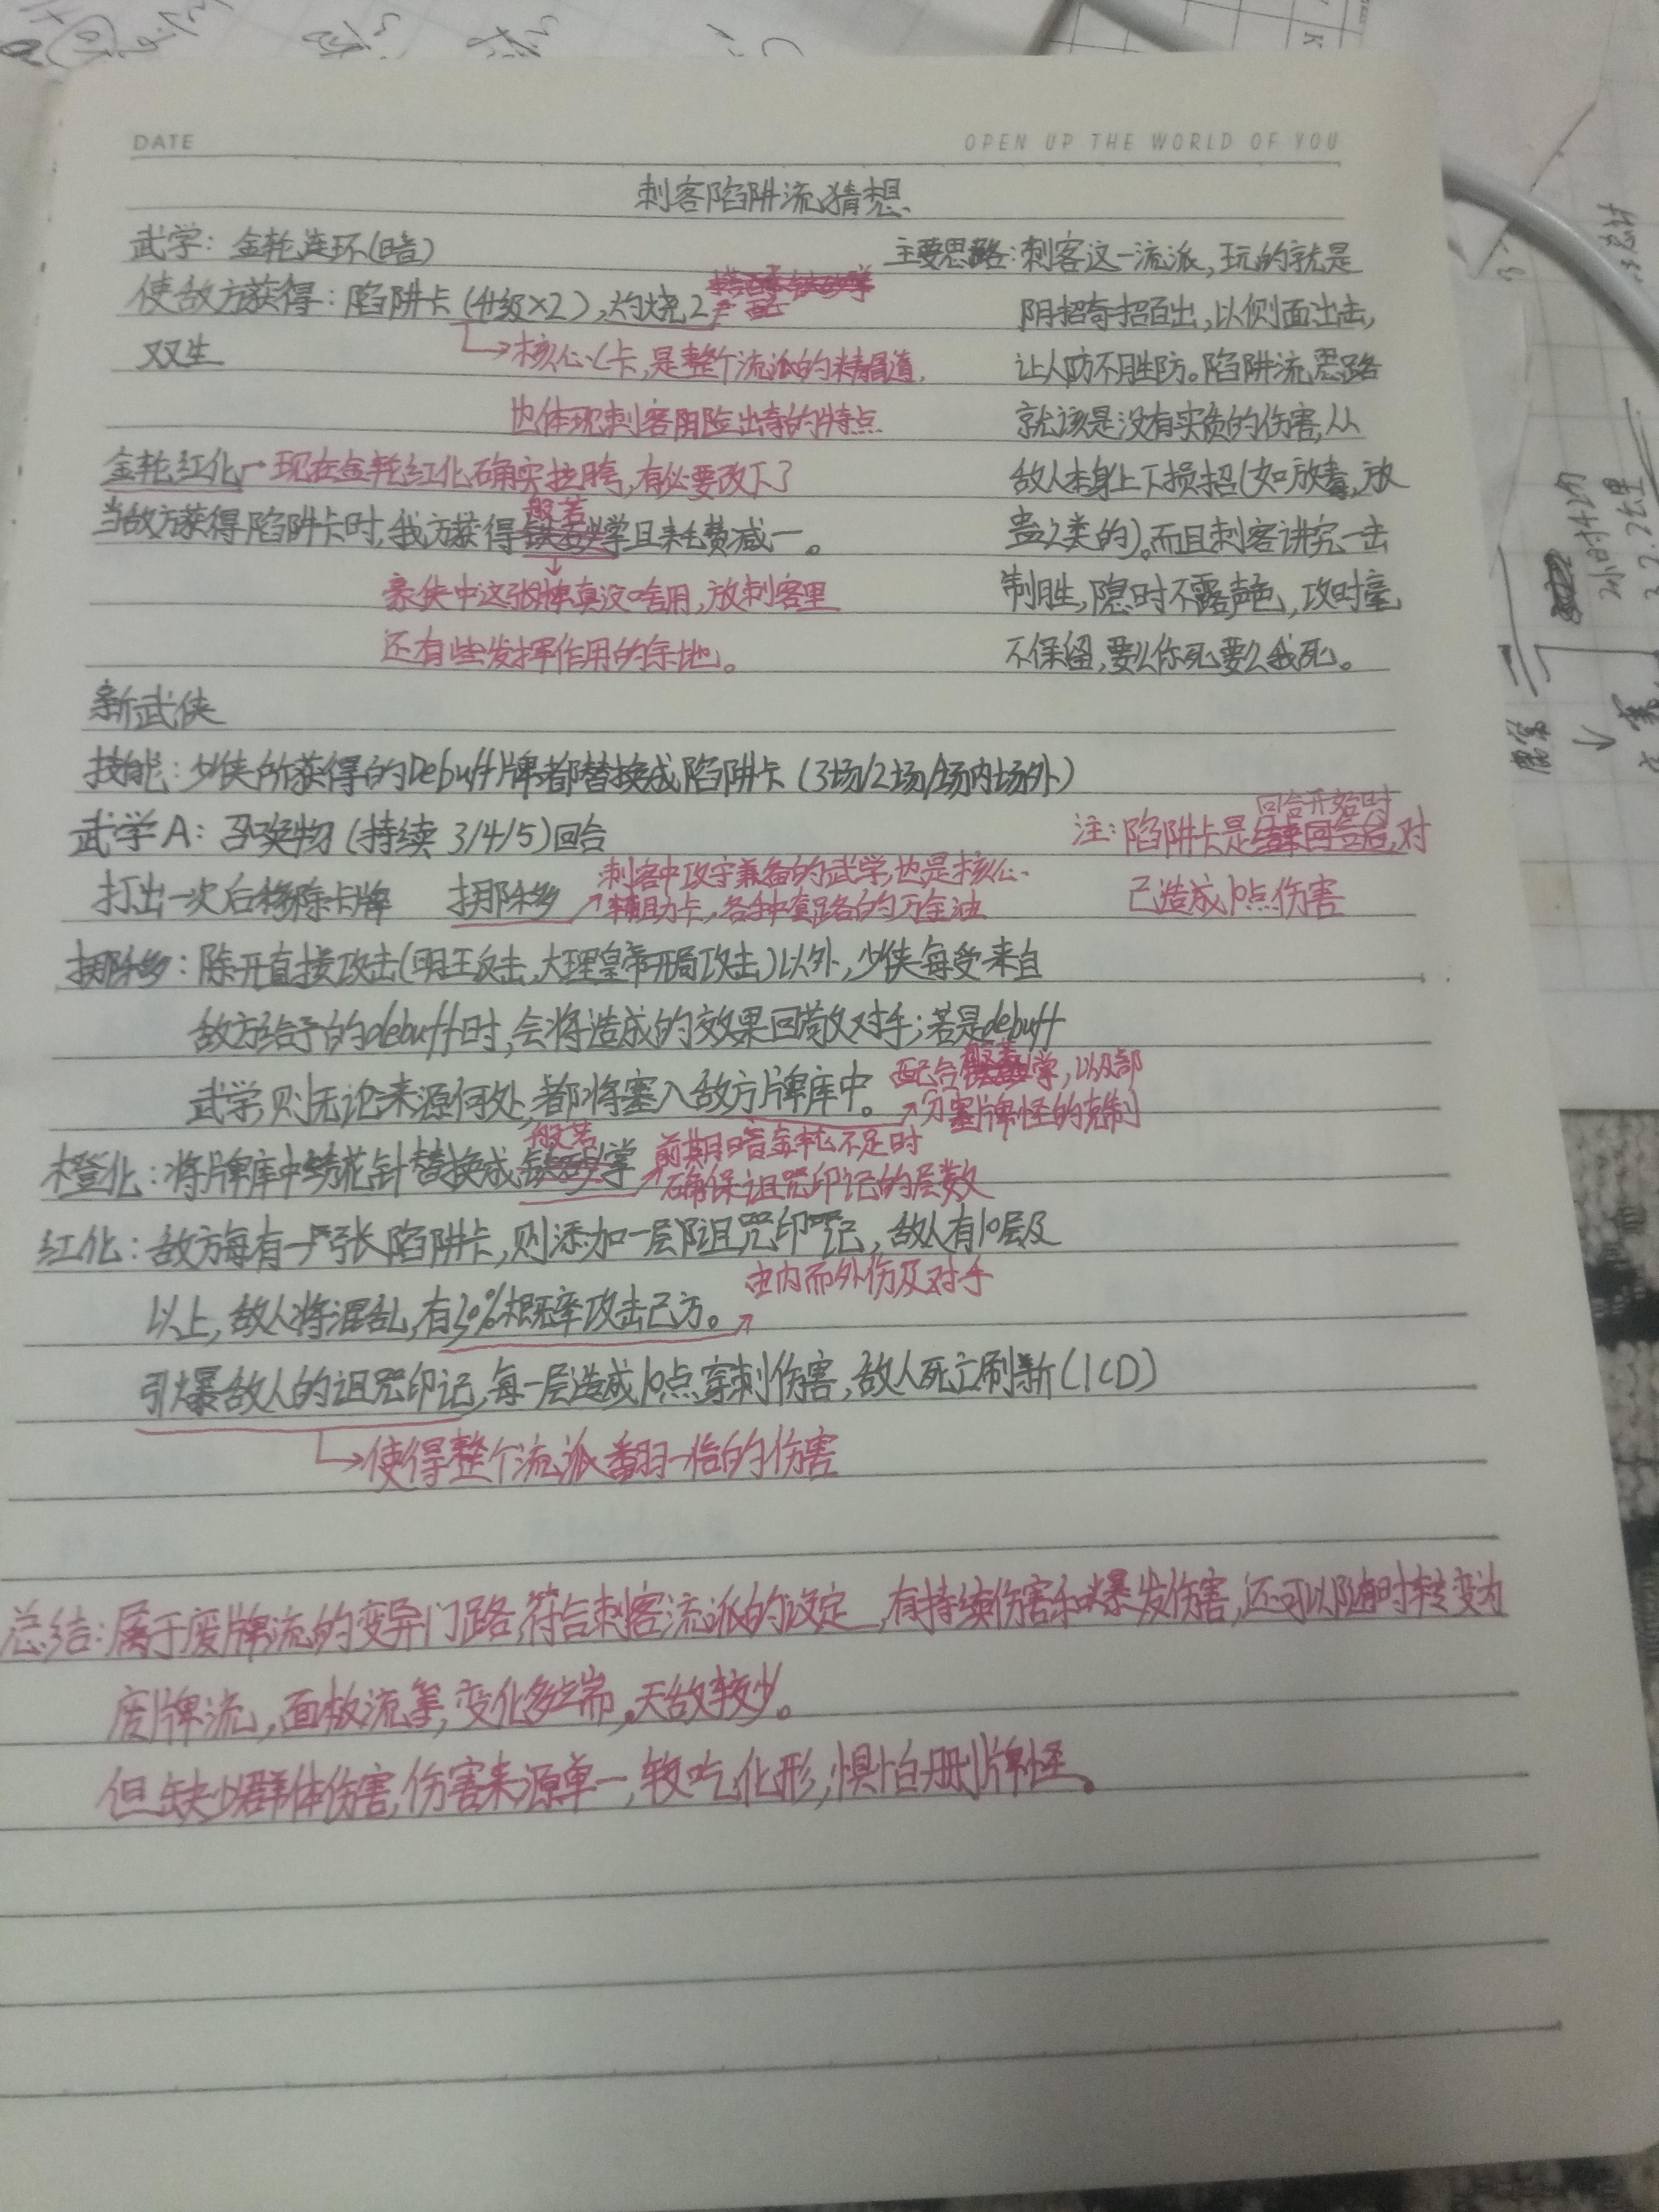 DATE
OPEN UP THE WORLD OF YOU
刺客陷阱流猜想
武学：金轮连环(暗)
使敌方获得：陷阱卡(升级×2),灼烧2
双生
→核心卡,是整个流派的精髓道,
也体现刺客阴险出奇的特点
主要思路：刺客这一流派,玩的就是
阴招奇招百出,以侧面出击,
让人防不胜防。陷阱流思路
就该是没有实质的伤害,从
敌人本身上下损招(如放毒,放
蛊之类的)。而且刺客讲究一击
制胜,隐时不露声色,攻时毫
不保留,要么你死要么我死。
金轮红化→现在金轮红化确实拉胯,有必要改下了
当敌方获得陷阱卡时,我方获得般若掌且耗费减一。
豪侠中这张牌真没啥用,放刺客里
还有些发挥作用的余地。
新武侠
技能：少侠所获得的Debuff牌都替换成陷阱卡(3场/2场/1场内场外)
武学A：召唤物(持续3/4/5)回合
打出一次后移除卡牌
刺客中攻守兼备的武学,也是核心
辅助卡,各种套路的万金油
注：陷阱卡是回合开始时,对
己造成10点伤害
除开直接攻击(明王反击,大理皇帝开局攻击)以外,少侠每受来自
敌方给予的debuff时,会将造成的效果回敬对手;若是debuff
武学,则无论来源何处,都将塞入敌方牌库中。
配合般若掌,以及部
分塞牌怪的克制
橙化：将牌库中绣花针替换成般若掌
前期暗金轮不足时
确保诅咒印记的层数
红化：敌方每有一张陷阱卡,则添加一层诅咒印记,敌人有10层及
以上,敌人将混乱,有30%概率攻击己方。
由内而外伤及对手
引爆敌人的诅咒印记,每一层造成10点穿刺伤害,敌人死亡刷新(1CD)
→使得整个流派翻一倍的伤害
总结：属于废牌流的变异门路,符合刺客流派的设定,有持续伤害和爆发伤害,还可以随时转变为
废牌流,面板流等,变化多端,天敌较少。
但缺少群体伤害,伤害来源单一,较吃化形,惧怕删牌怪。